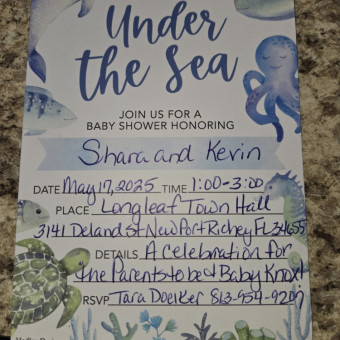 Under
the Sea
JOIN US FOR A
BABY SHOWER HONORING
Shara and Kevin
DATE May 17, 2025 TIME 1:00-3:00
PLACE Longleaf Town Hall
3141 Deland St New Port Richey FL 34655
DETAILS A celebration for
the Parents to be & Baby Knox!
RSVP Tara Doelker 813-954-9207